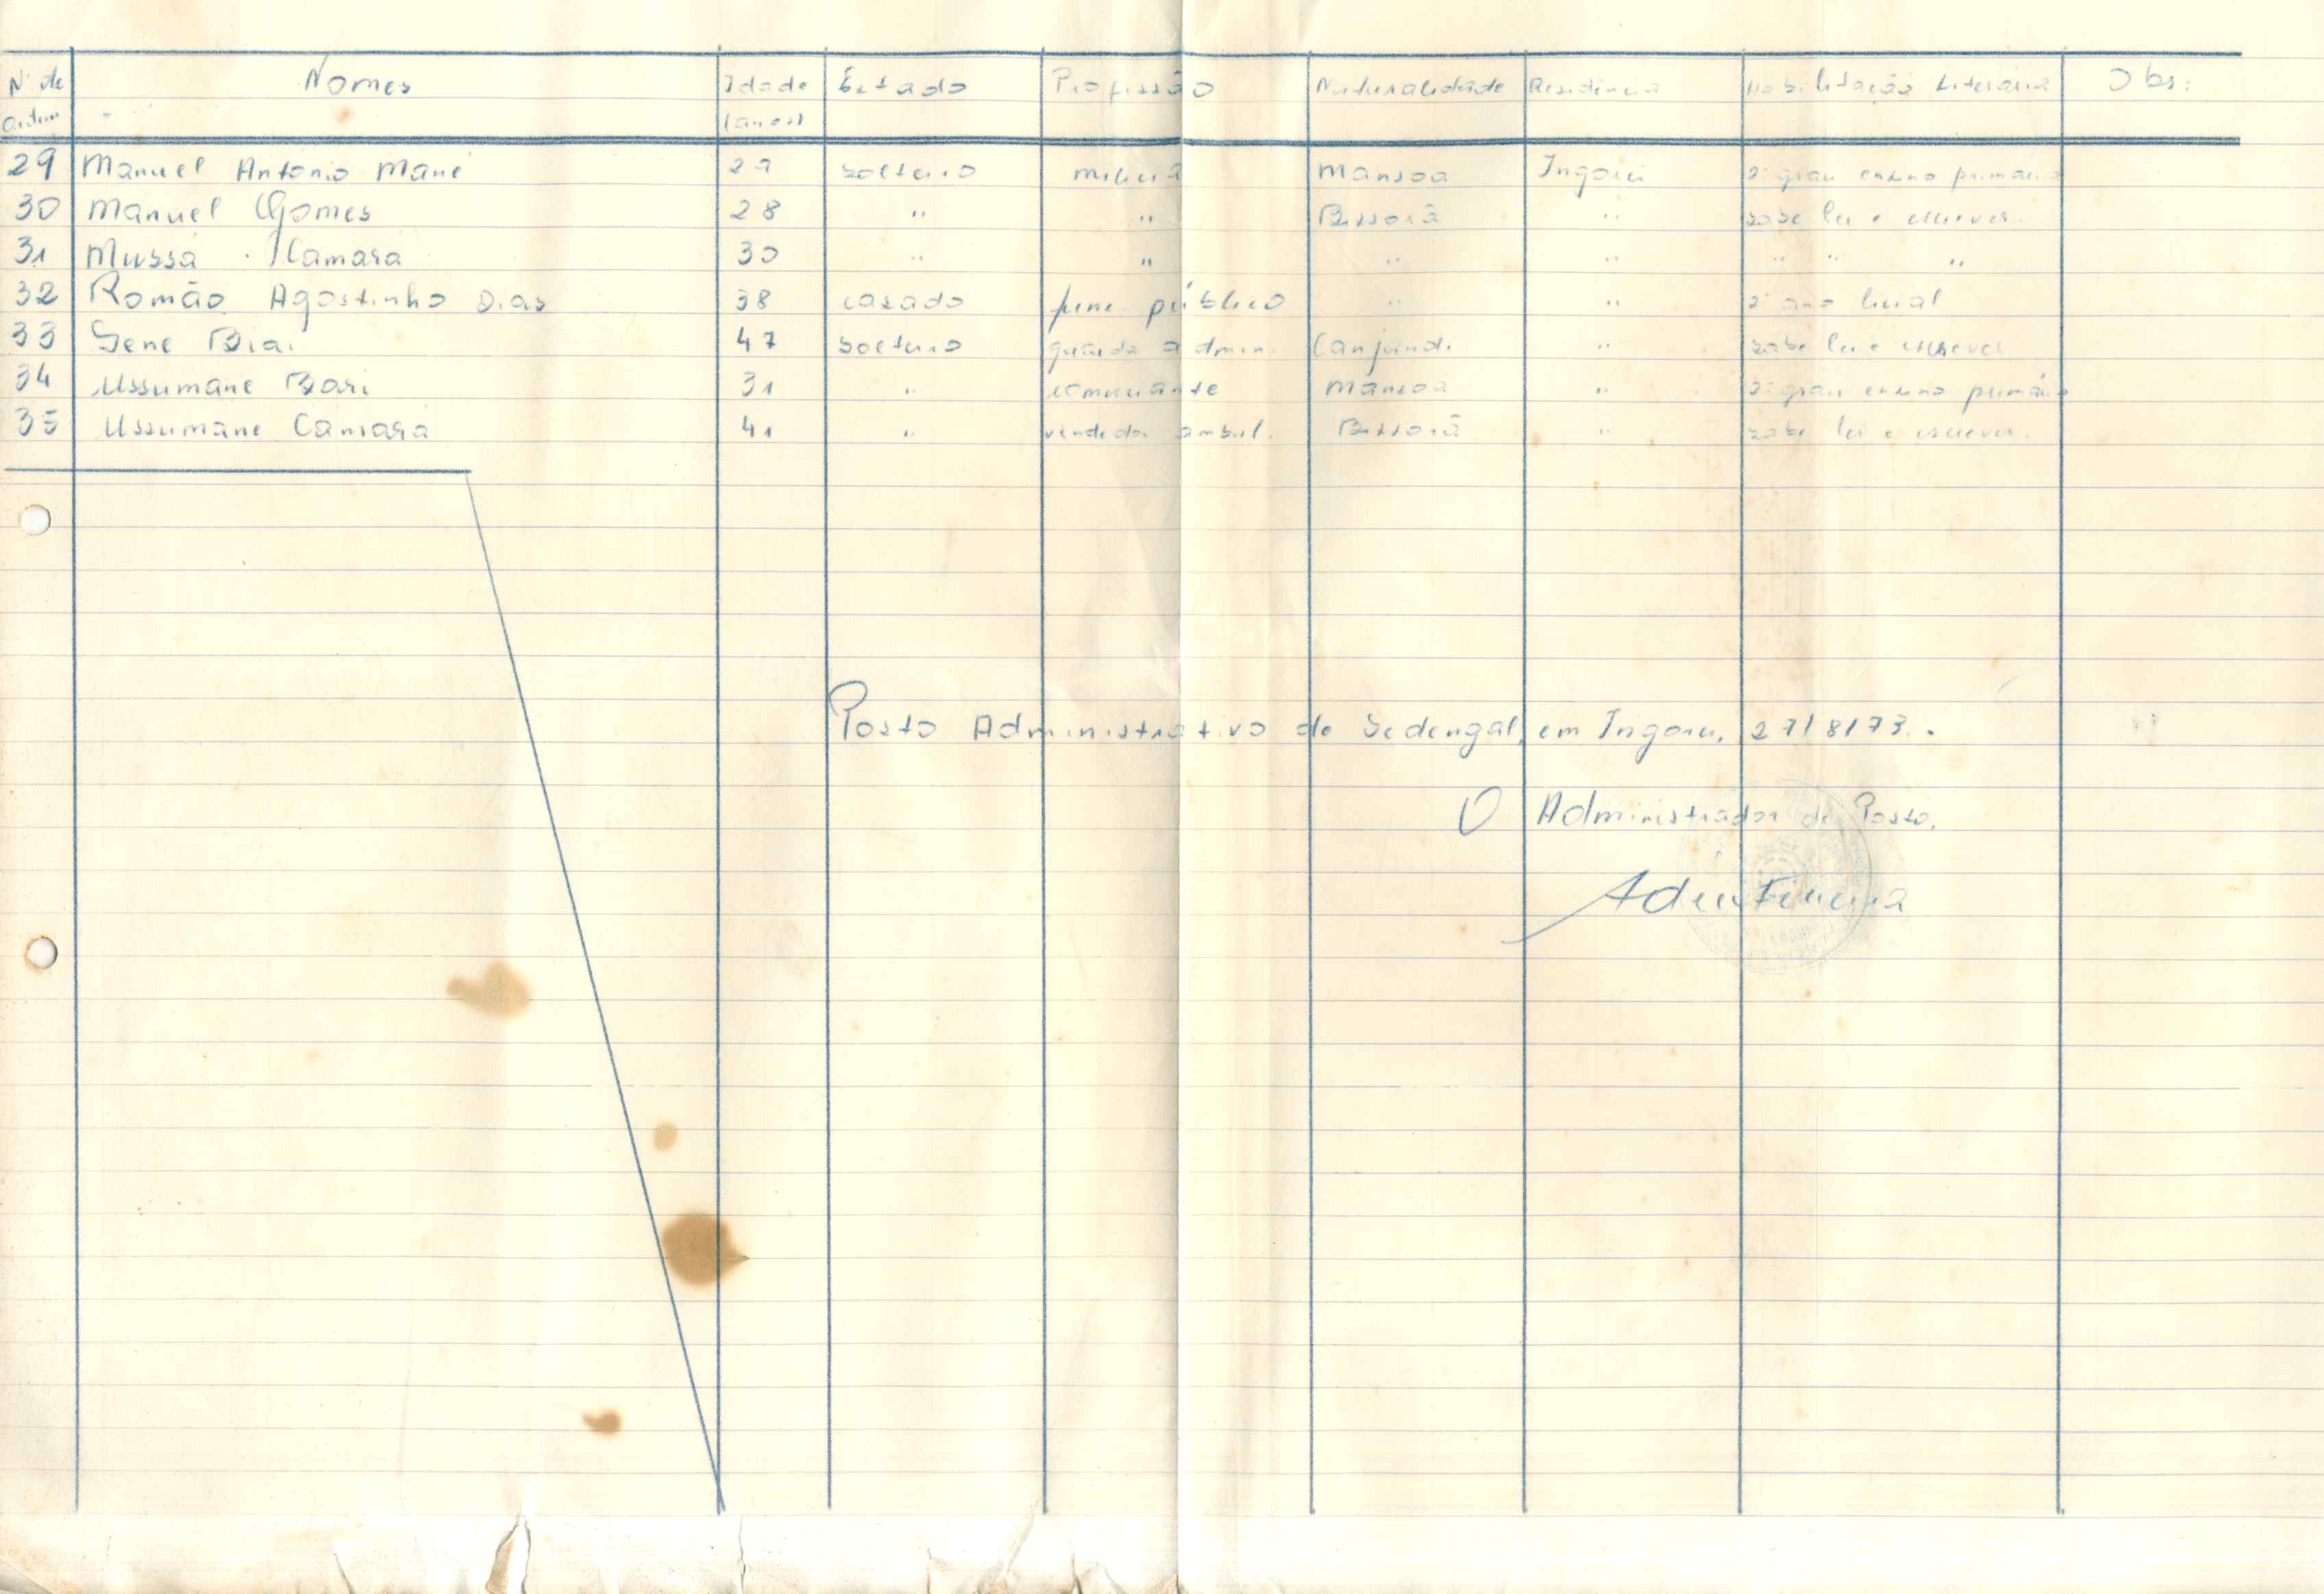 Nº de ordem Nomes Idade (anos) Estado Profissão Naturalidade Residência Habilitação Literária Obs:
29 Manuel Antonio Mané 29 solteiro milicia Mansoa Ingoré 2º grau ensino primário
30 Manuel Gomes 28 " " Bissorã " sabe ler e escrever.
31 Mussá Camará 30 " " " " " " "
32 Romão Agostinho Dias 38 casado func. público " " 2º ano liceal
33 Sene Biai 47 solteiro guarda admin. Canjandi " sabe ler e escrever
34 Ussumane Bari 31 " comerciante Mansoa " 2º grau ensino primário
35 Ussumane Camará 41 " vendedor ambul. Bissorã " sabe ler e escrever.
Posto Administrativo de Sedengal, em Ingoré, 27/8/73.
O Administrador de Posto,